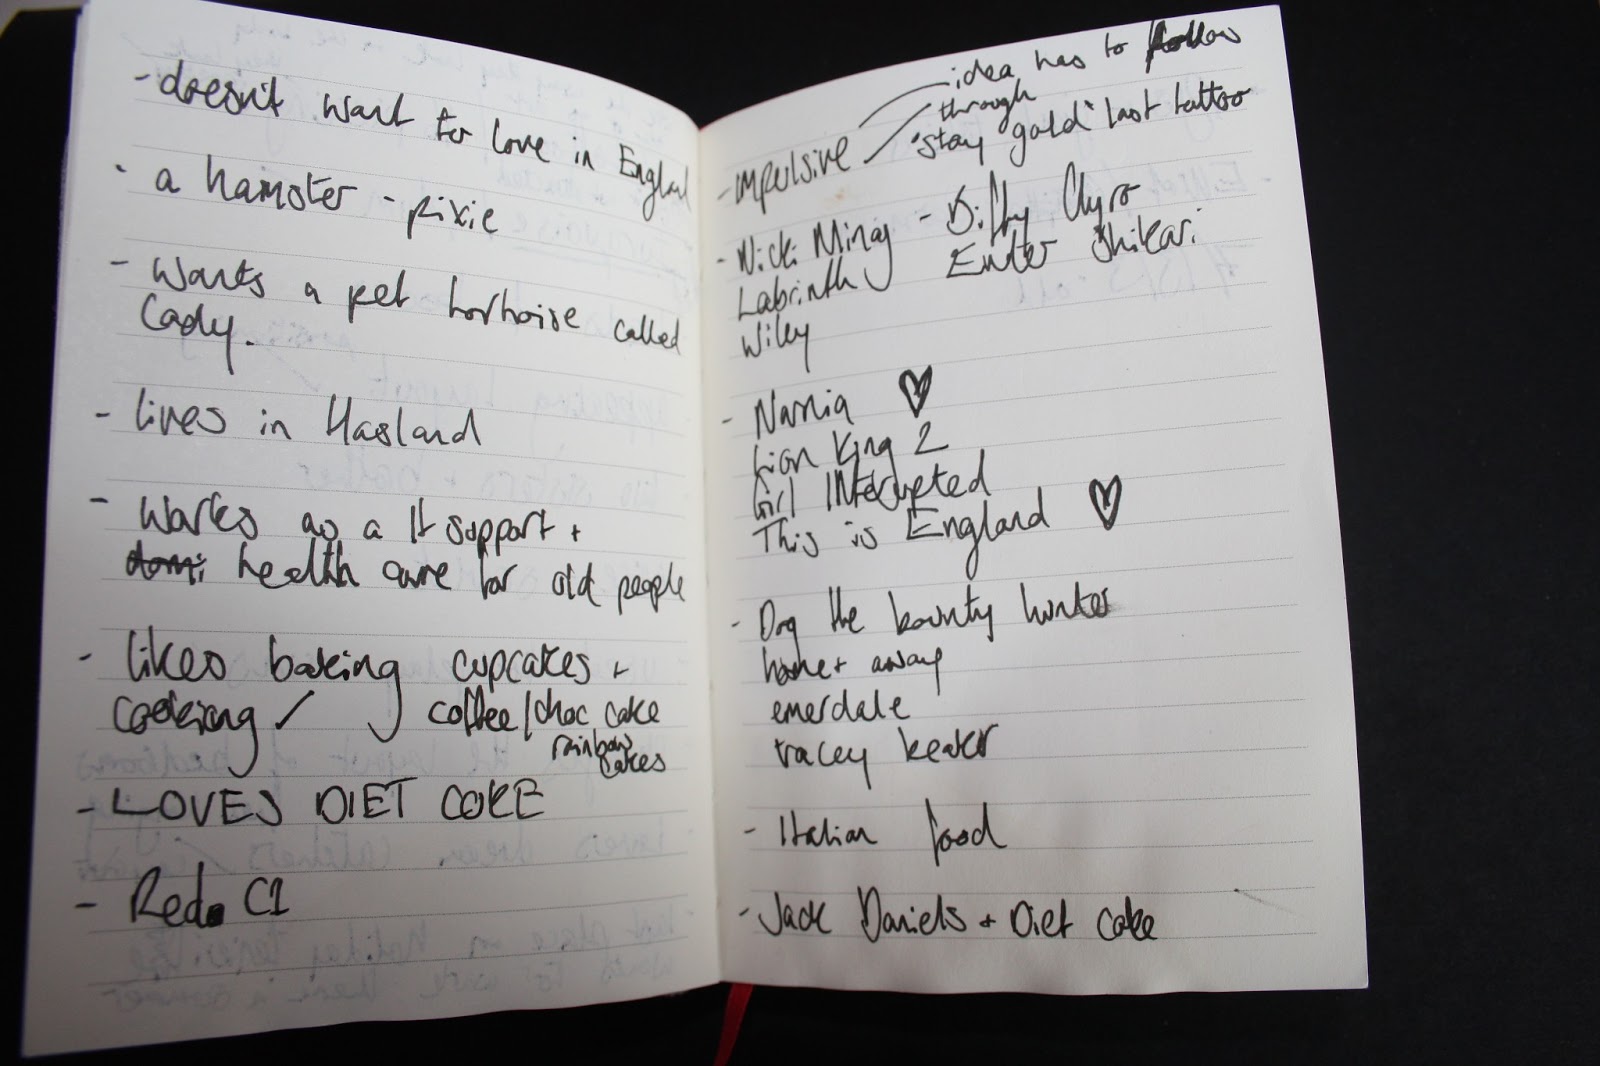 - doesn't want to love in England
- a hamster - pixie
- wants a pet tortoise called
Cady.
- lives in Hasland
- works as a It support +
health care for old people
- likes baking cupcakes +
cooking / coffee/choc cake
rainbow
cakes
- LOVES DIET COKE
- Red C1
idea has to follow
through
- impulsive "stay gold" last tattoo
- Nicki Minaj - Biffy Clyro
Labrinth Enter Shikari
Wiley
- Narnia ♥
Lion King 2
Girl INterupted
This is England ♥
- Dog the bounty hunter
home + away
emerdale
tracey beaker
- Italian food
- Jack Daniels + Diet coke